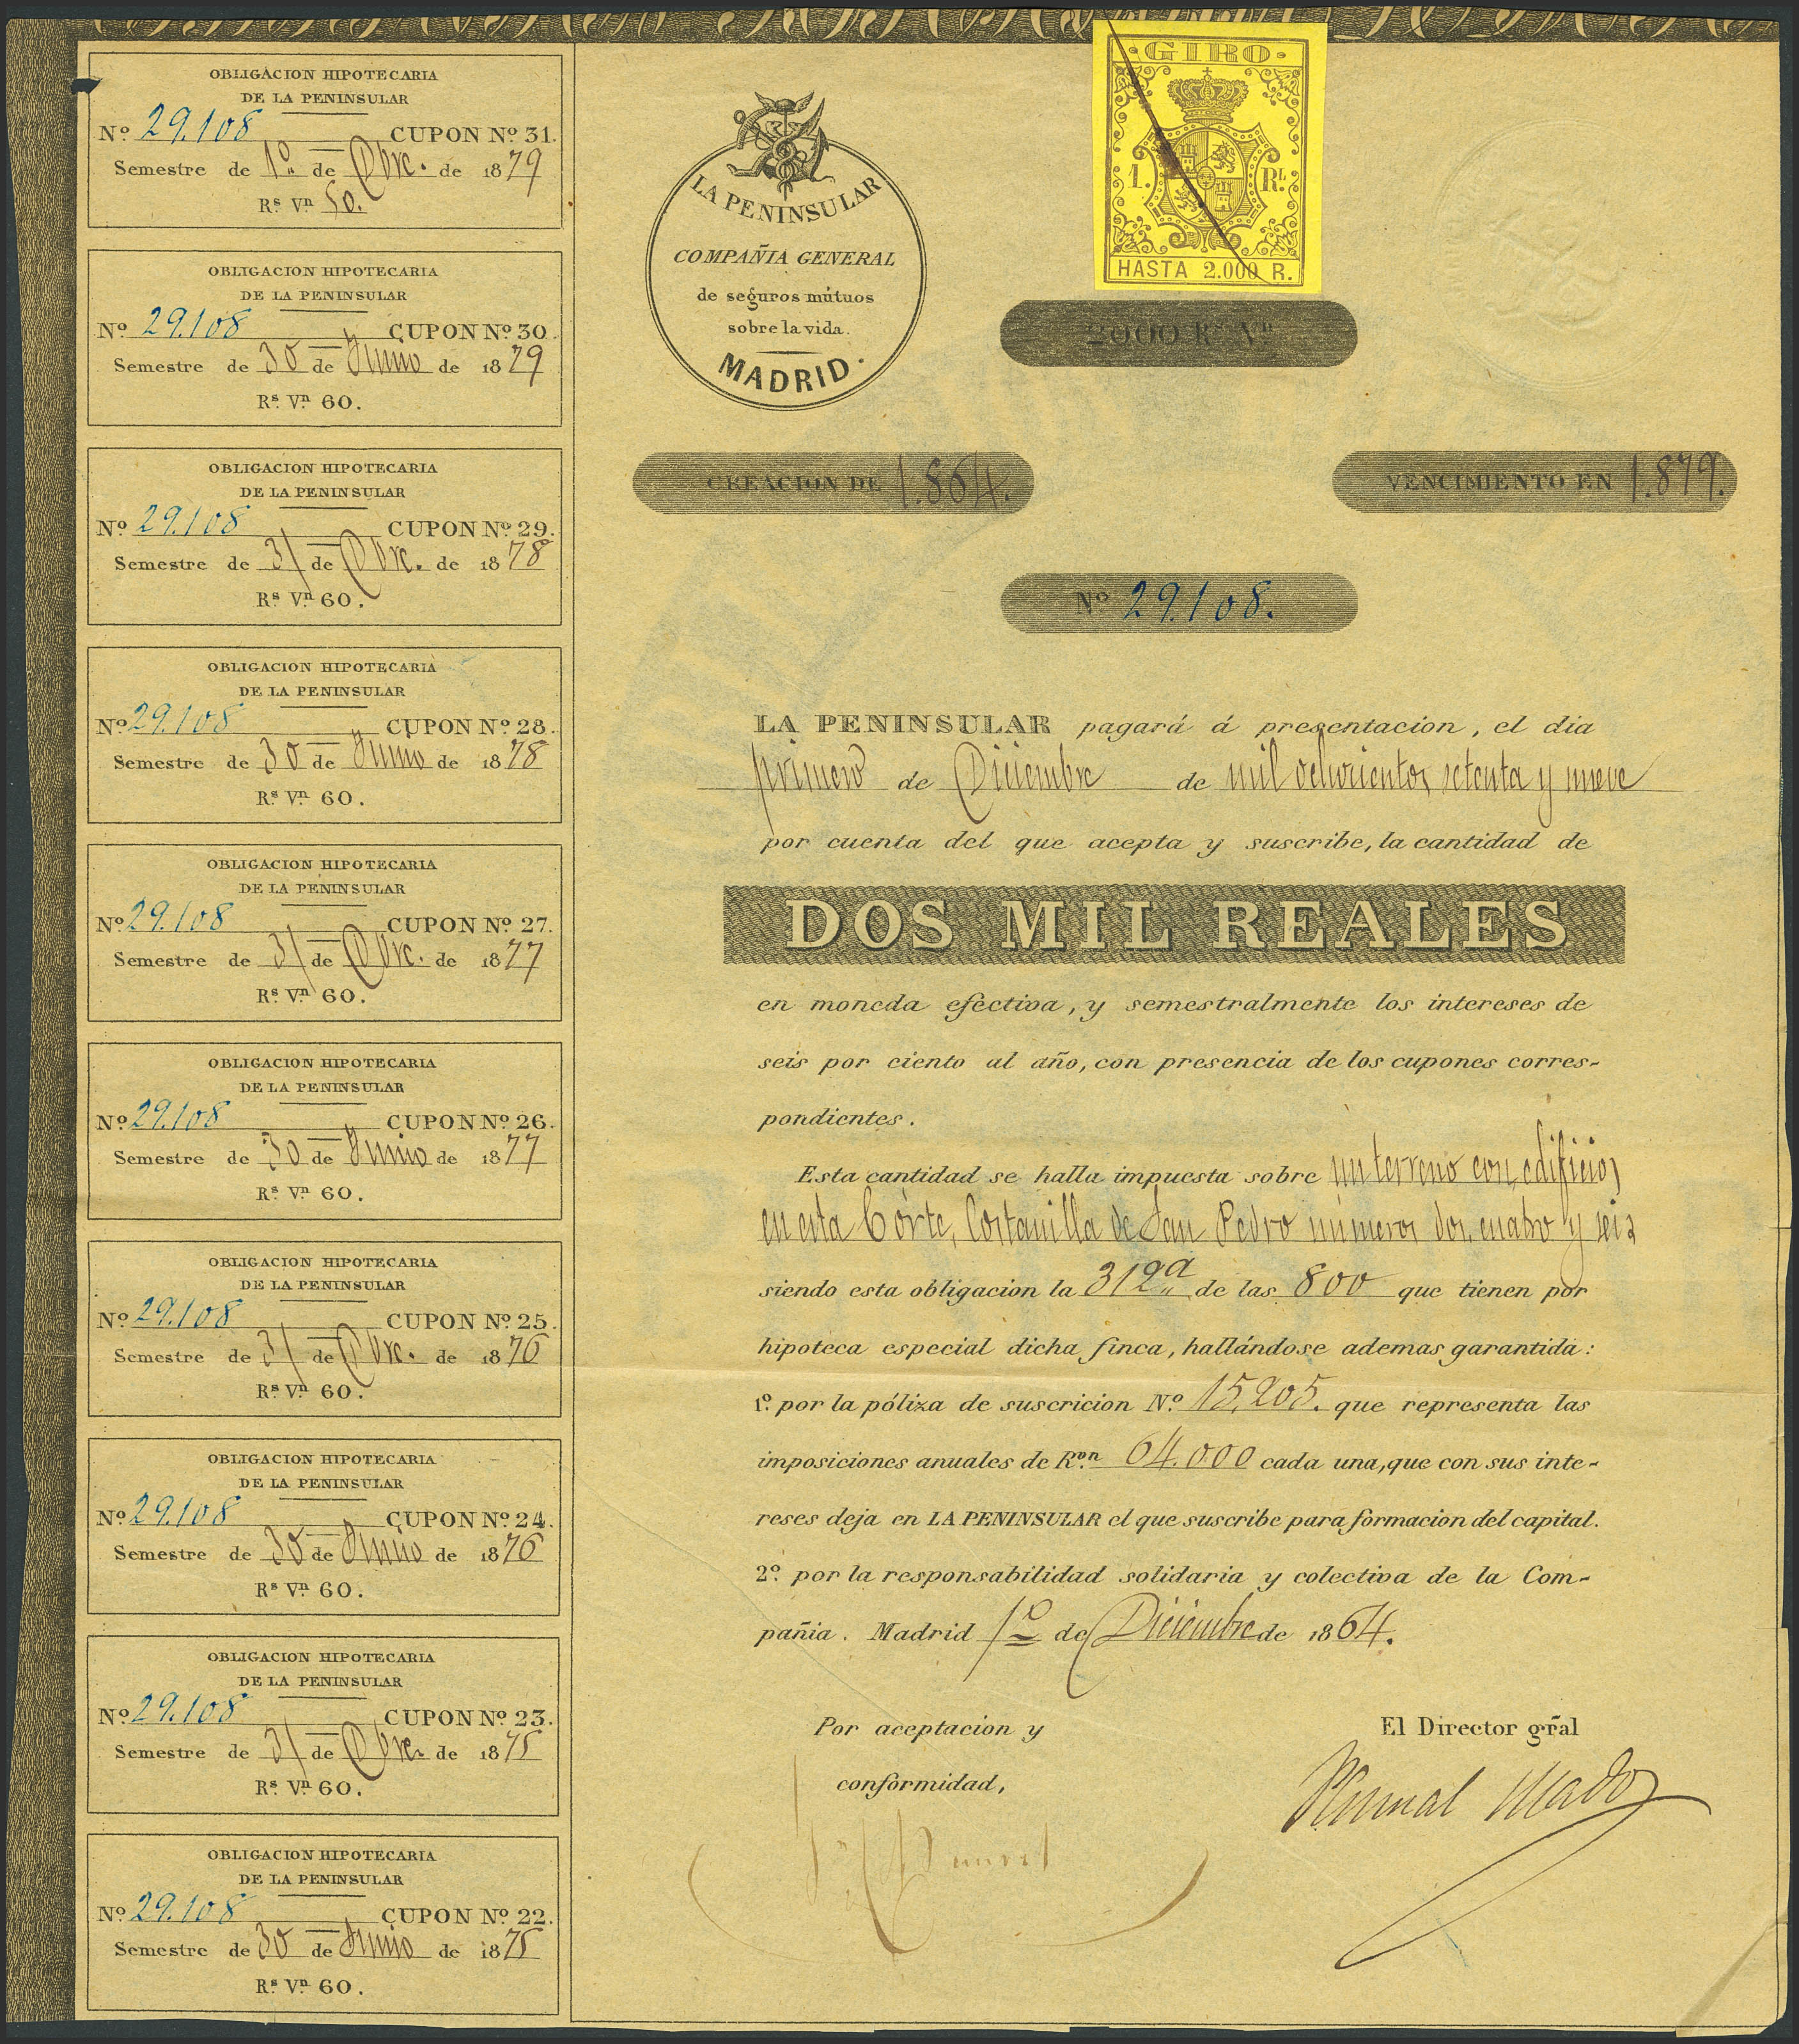 OBLIGACION HIPOTECARIA
DE LA PENINSULAR
Nº 29.108 CUPON Nº 31.
Semestre de 1º de Dbre. de 1879
Rs. Vn 50.
OBLIGACION HIPOTECARIA
DE LA PENINSULAR
Nº 29.108 CUPON Nº 30.
Semestre de 30 de Junio de 1879
Rs. Vn 60.
OBLIGACION HIPOTECARIA
DE LA PENINSULAR
Nº 29.108 CUPON Nº 29.
Semestre de 31 de Dbre. de 1878
Rs. Vn 60.
OBLIGACION HIPOTECARIA
DE LA PENINSULAR
Nº 29.108 CUPON Nº 28.
Semestre de 30 de Junio de 1878
Rs. Vn 60.
OBLIGACION HIPOTECARIA
DE LA PENINSULAR
Nº 29.108 CUPON Nº 27.
Semestre de 31 de Dbre. de 1877
Rs. Vn 60.
OBLIGACION HIPOTECARIA
DE LA PENINSULAR
Nº 29.108 CUPON Nº 26.
Semestre de 30 de Junio de 1877
Rs. Vn 60.
OBLIGACION HIPOTECARIA
DE LA PENINSULAR
Nº 29.108 CUPON Nº 25.
Semestre de 31 de Dbre. de 1876
Rs. Vn 60.
OBLIGACION HIPOTECARIA
DE LA PENINSULAR
Nº 29.108 CUPON Nº 24.
Semestre de 30 de Junio de 1876
Rs. Vn 60.
OBLIGACION HIPOTECARIA
DE LA PENINSULAR
Nº 29.108 CUPON Nº 23.
Semestre de 31 de Dbre. de 1875
Rs. Vn 60.
OBLIGACION HIPOTECARIA
DE LA PENINSULAR
Nº 29.108 CUPON Nº 22.
Semestre de 30 de Junio de 1875
Rs. Vn 60.
LA PENINSULAR
COMPAÑIA GENERAL
de seguros mútuos
sobre la vida.
MADRID.
·GIRO·
1. Rl.
HASTA 2.000 R.
2000 Rs. Vn
CREACION DE 1.864.
VENCIMIENTO EN 1.879.
Nº 29.108.
LA PENINSULAR pagará á presentacion, el dia
primero de Diciembre de mil ochocientos setenta y nueve
por cuenta del que acepta y suscribe, la cantidad de
DOS MIL REALES
en moneda efectiva, y semestralmente los intereses de
seis por ciento al año, con presencia de los cupones corres-
pondientes.
Esta cantidad se halla impuesta sobre un terreno con edificios
en esta Córte, Costanilla de San Pedro números dos, cuatro y seis
siendo esta obligacion la 312ª de las 800 que tienen por
hipoteca especial dicha finca, hallándose ademas garantida:
1º. por la póliza de suscricion Nº. 15.205. que representa las
imposiciones anuales de Ron. 64.000 cada una, que con sus inte-
reses deja en LA PENINSULAR el que suscribe para formacion del capital.
2º. por la responsabilidad solidaria y colectiva de la Com-
pañia. Madrid 1º de Diciembre de 1864.
Por aceptacion y
conformidad,
El Director gral
Pascual Madoz